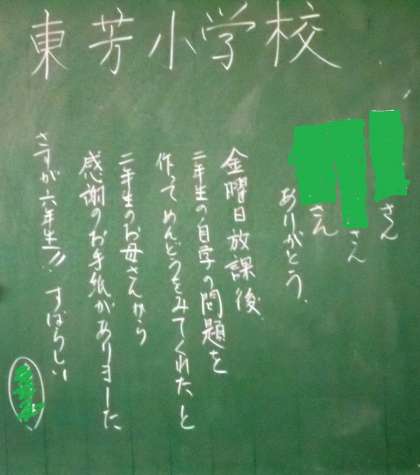 東芳小学校
さん
さん
さん
ありがとう。
金曜日放課後、
二年生の自学の問題を
作ってめんどうをみてくれたと
二年生のお母さんから
感謝のお手紙がありました
さすが六年生!! すばらしい